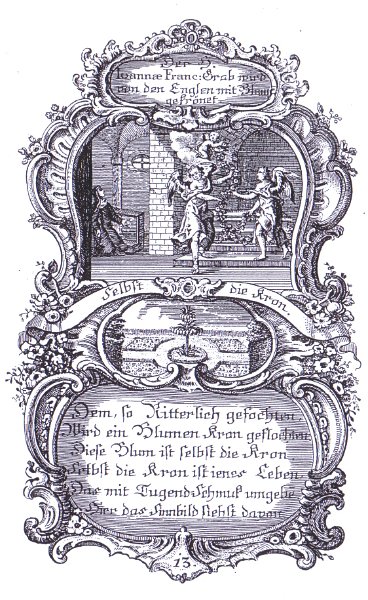 Der H.
Joannæ Franc: Grab wird
von den Englen mit Blum̅
gekrönet.
Selbst die Kron.
Dem, so Ritterlich gefochten
Wird ein Blumen Kron geflochten
Diese Blum ist selbst die Kron
Selbst die Kron ist ienes Leben
Das mit Tugend Schmuk umgebe
Hier das Sinnbild siehst davon
13.